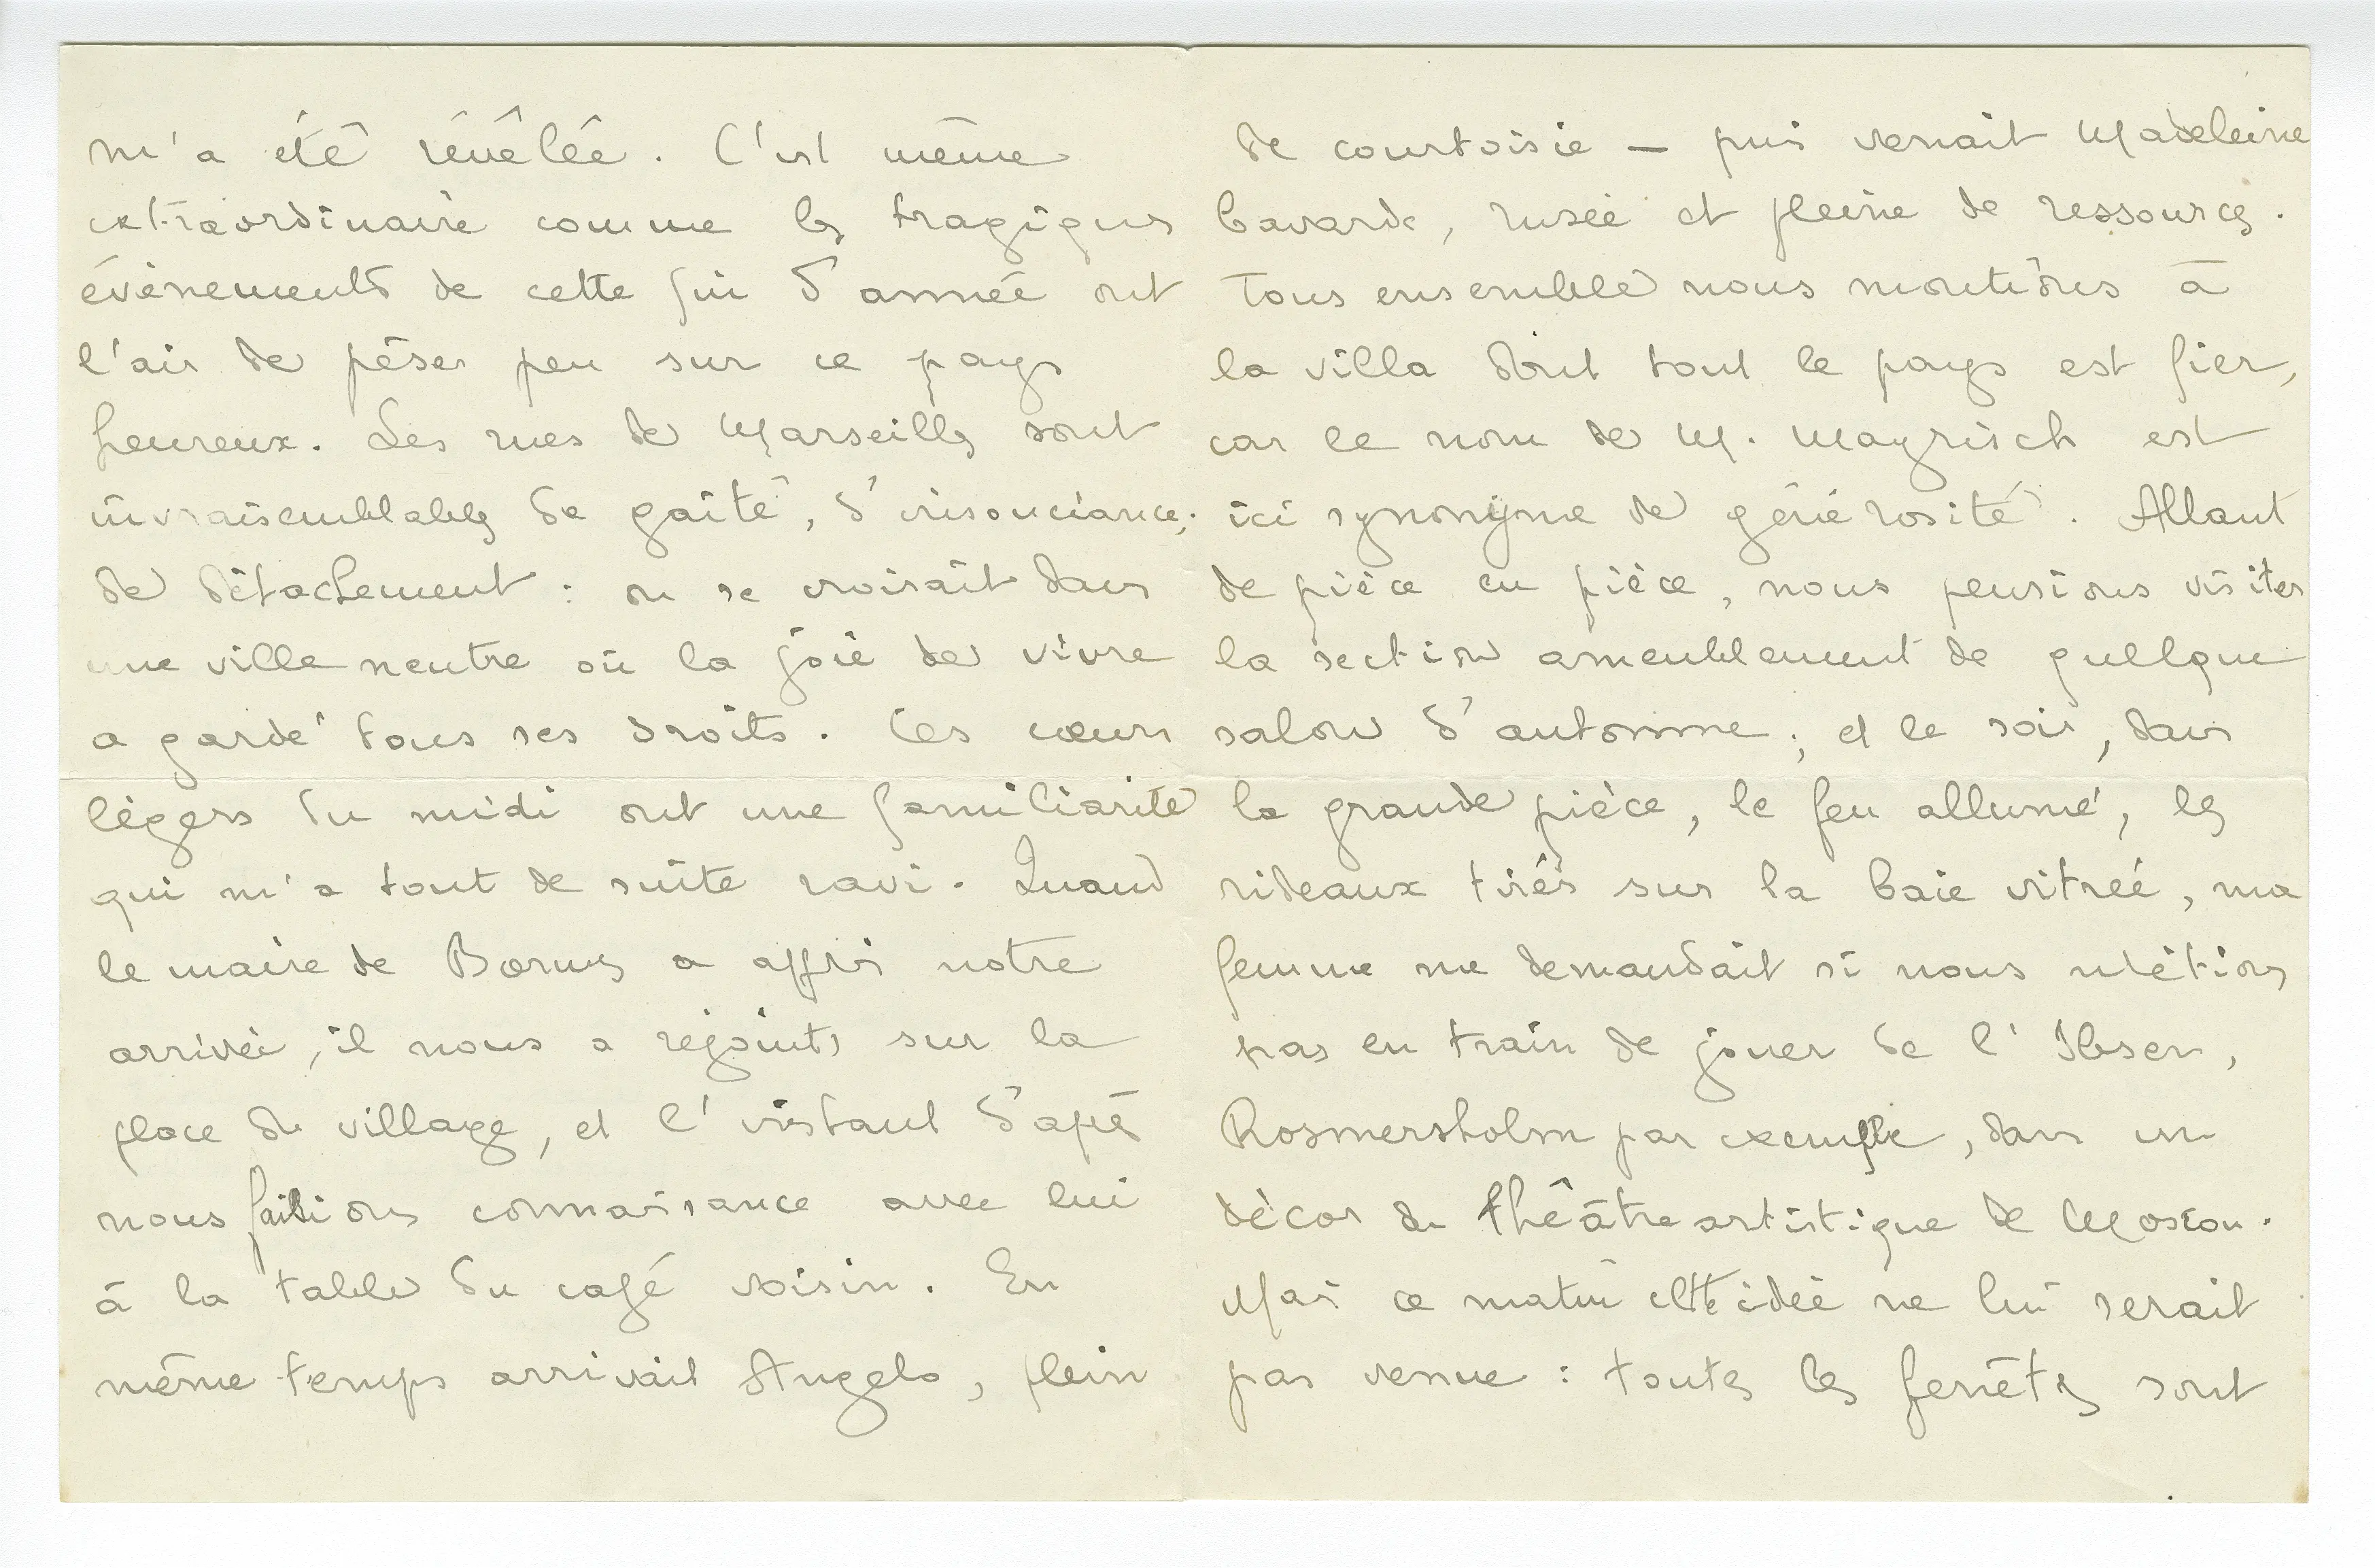 m'a été révélée. C'est même
extraordinaire comme les tragiques
événements de cette fin d'année ont
l'air de péser peu sur ce pays
heureux. Les rues de Marseille sont
invraisemblables de gaité, d'insouciance,
de détachement : on se croirait dans
une ville neutre où la joie de vivre
a gardé tous ses droits. Ces cœurs
légers du midi ont une familiarité
qui m'a tout de suite ravi. Quand
le maire de Bormes a appris notre
arrivée, il nous a rejoints sur la
place du village, et l'instant d'après
nous faisions connaissance avec lui
à la table du café voisin. En
même temps arrivait Angelo, plein
de courtoisie — puis venait Madeleine
bavarde, rusée et pleine de ressources.
Tous ensemble nous montions à
la villa dont tout le pays est fier,
car le nom de M. Mayrisch est
ici synonyme de générosité. Allant
de pièce en pièce, nous pensions visiter
la section ameublement de quelque
salon d'automne ; et le soir, dans
la grande pièce, le feu allumé, les
rideaux tirés sur la baie vitrée, ma
femme me demandait si nous n'étions
pas en train de jouer de l'Ibsen,
Rosmersholm par exemple, dans un
décor du théâtre artistique de Moscou.
Mais ce matin cette idée ne lui serait
pas venue : toutes les fenêtres sont